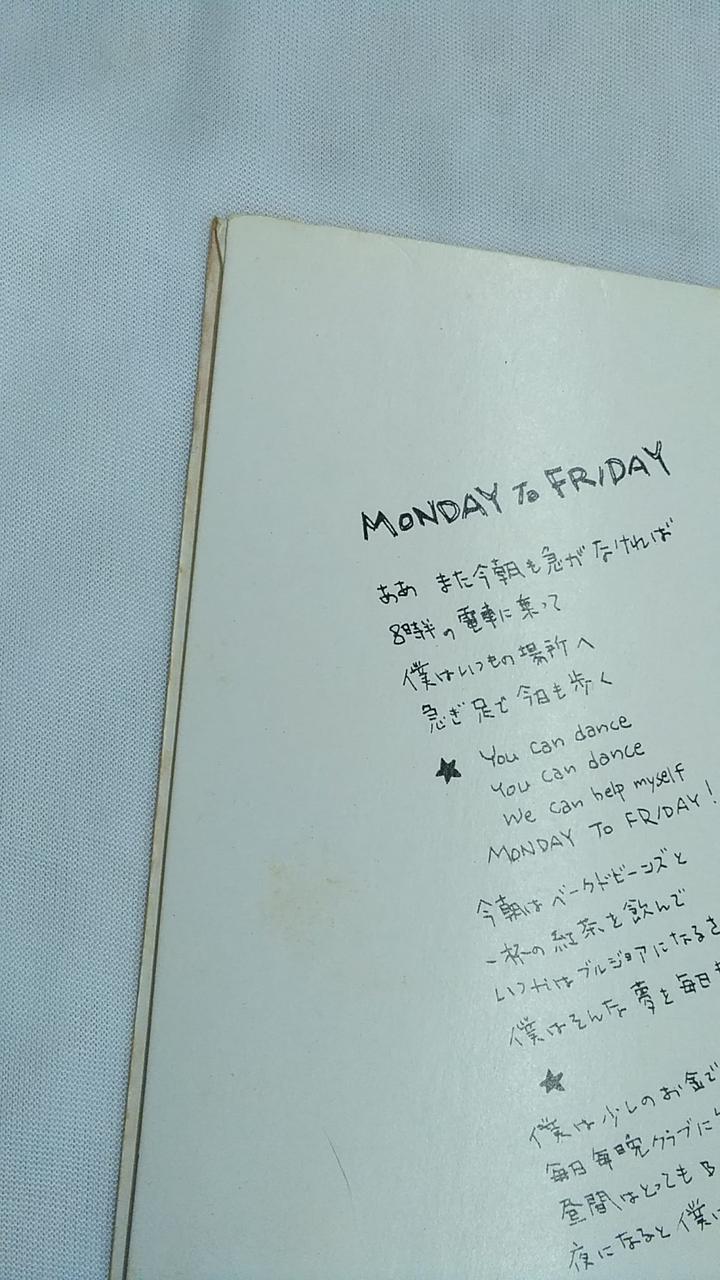 MONDAY To FRIDAY
ああ また今朝も急がなければ
8時半の電車に乗って
僕はいつもの場所へ
急ぎ足で今日も歩く
★ You can dance
You can dance
We can help myself
MONDAY TO FRIDAY!
今朝はベークドビーンズと
一杯の紅茶を飲んで
いつかはブルジョアになるさ
僕はそんな夢を毎日
★
僕は少しのお金で
毎日毎晩クラブに
昼間はとっても B
夜になると僕は